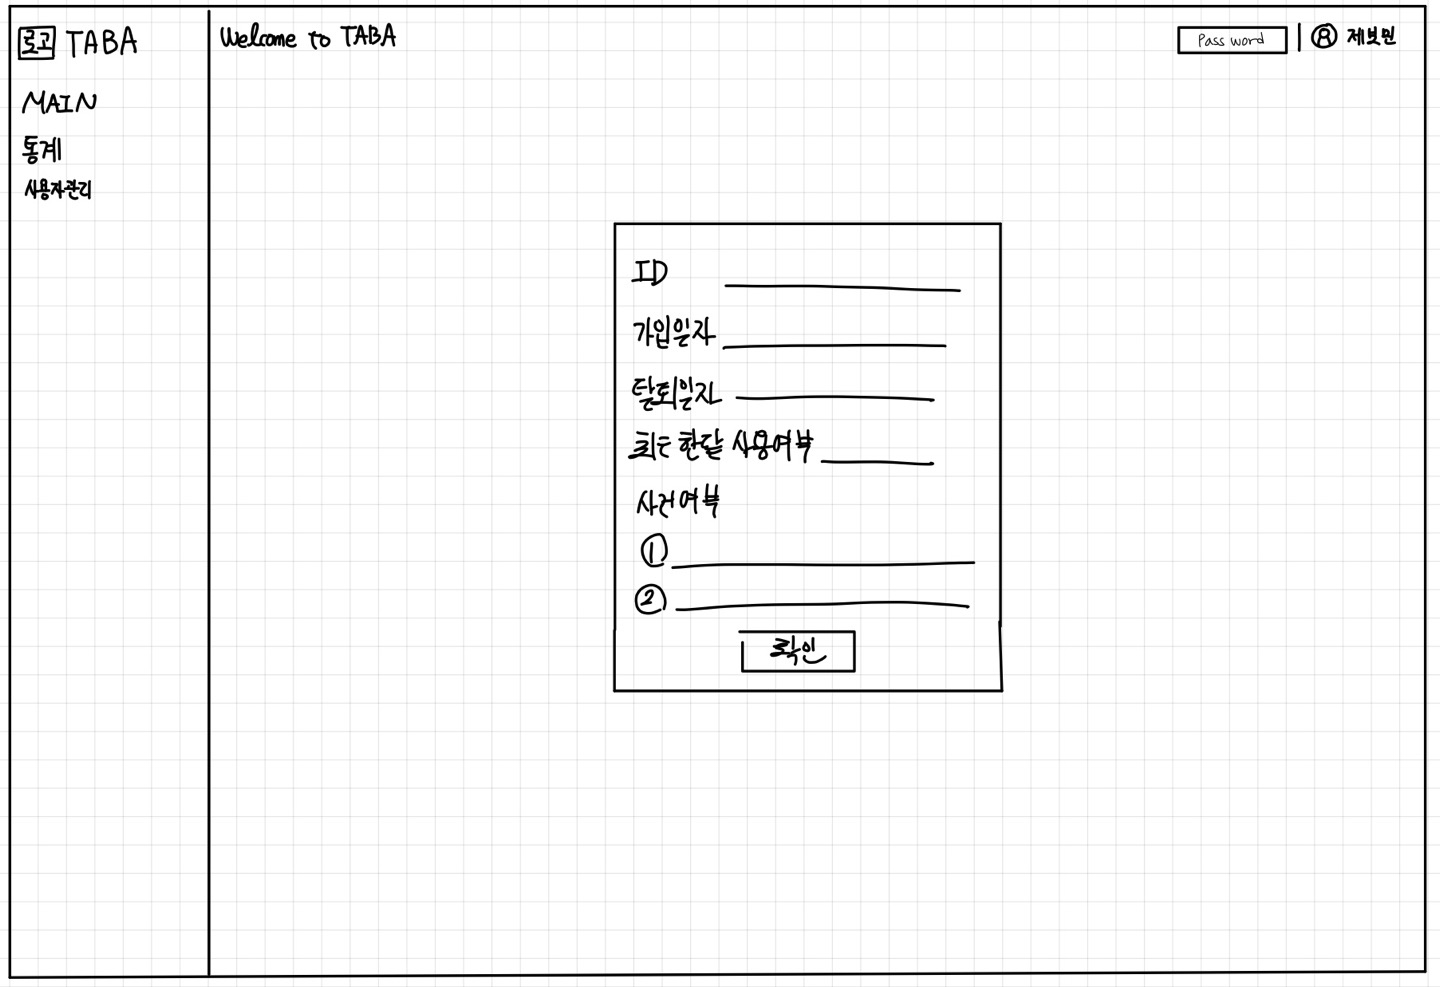 로고 TABA
MAIN
통계
사용자관리
Welcome to TABA
Pass word
제보민
ID
가입일자
탈퇴일자
최근 한달 사용여부
사건여부
①
②
확인